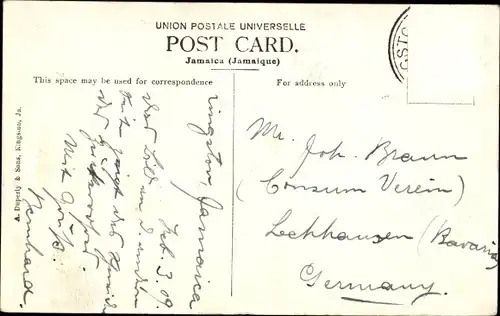 UNION POSTALE UNIVERSELLE
POST CARD.
Jamaica (Jamaique)
This space may be used for correspondence
For address only
GSTO
A. Duperly & Sons, Kingston, Ja.
Kingston, Jamaica
Feb. 3. 09.
Das Bild an d. andern
Seite zeigt das
der
Mit Gruß
Bernhard.
Mr. Joh. Braun
(Consum Verein)
Lechhausen (Bavaria
Germany.